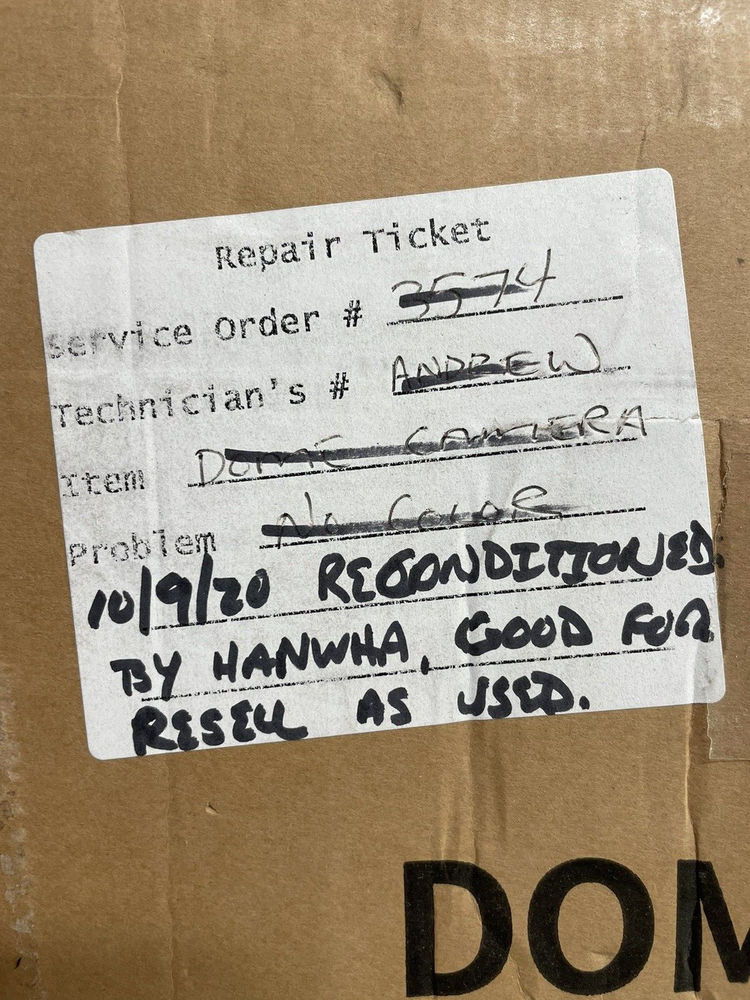 Repair Ticket
Service Order # 3574
Technician's # ANDREW
Item DOME CAMERA
Problem No COLOR
10/9/20 RECONDITIONED.
BY HANWHA, GOOD FOR
RESELL AS USED.
DOM